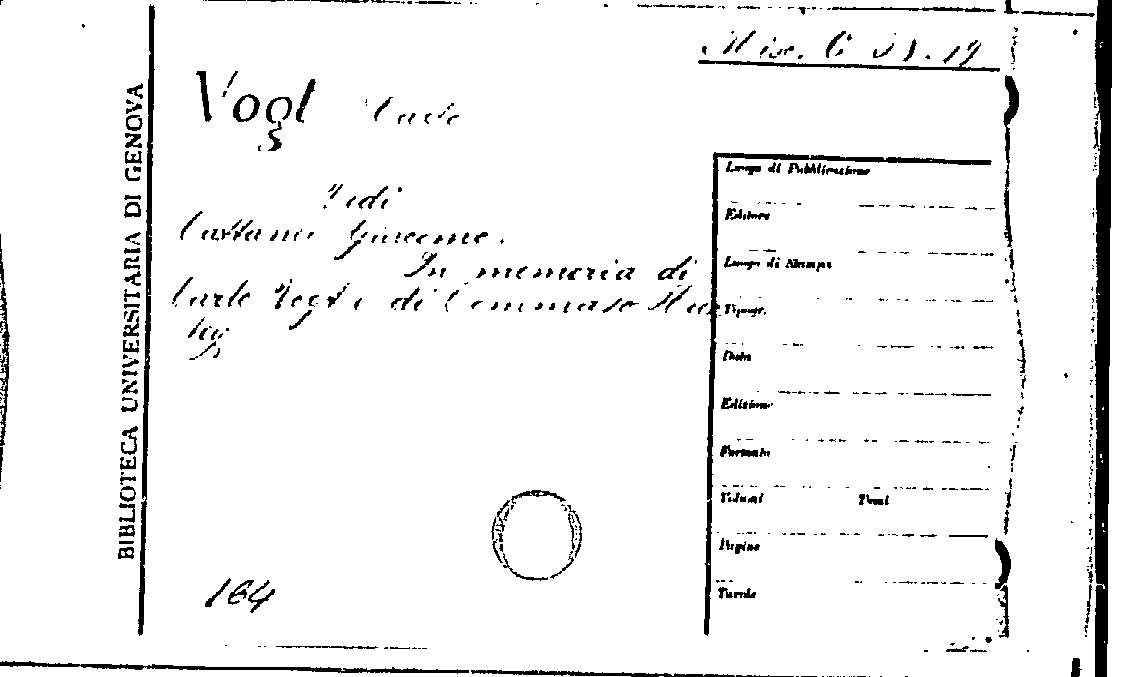 Misc. C
BIBLIOTECA UNIVERSITARIA DI GENOVA
Vogl Carlo
Vedi
Cattaneo Giacomo.
In memoria di
Carlo Vogt e di Tommaso Hux
ley
Luogo di Pubblicazione
Editore
Luogo di Stampa
Tipogr.
Data
Edizione
Formato
Volumi Tomi
Pagine
Tavole
164